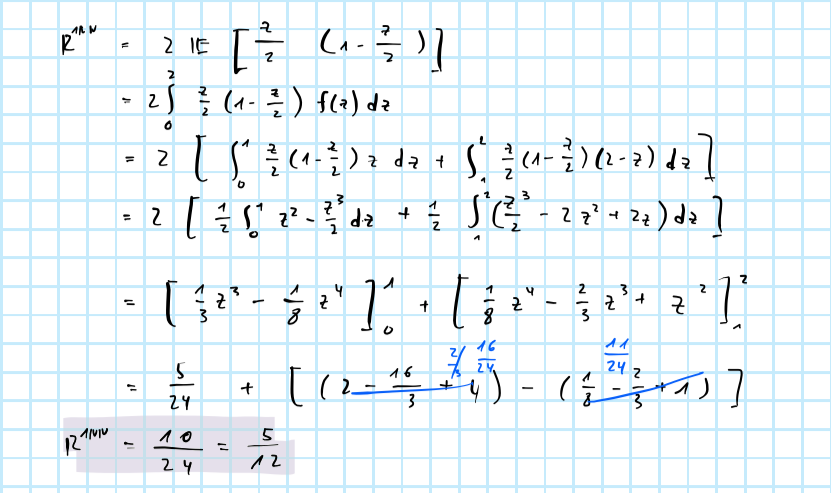 R^{1NN} = 2 𝔼 [ z/2 (1 - z/2) ]
= 2 ∫_0^2 z/2 (1 - z/2) f(z) dz
= 2 [ ∫_0^1 z/2 (1 - z/2) z dz + ∫_1^2 z/2 (1 - z/2) (2 - z) dz ]
= 2 [ 1/2 ∫_0^1 z² - z³/2 dz + 1/2 ∫_1^2 ( z³/2 - 2z² + 2z ) dz ]
= [ 1/3 z³ - 1/8 z⁴ ]_0^1 + [ 1/8 z⁴ - 2/3 z³ + z² ]_1^2
2/3 16/24 11/24
= 5/24 + [ ( 2 - 16/3 + 4 ) - ( 1/8 - 2/3 + 1 ) ]
R^{1NN} = 10/24 = 5/12